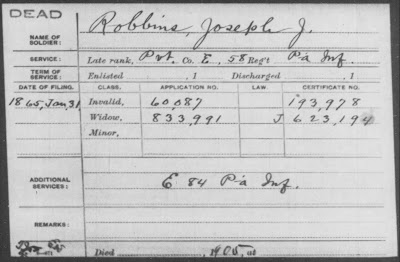 DEAD
NAME OF SOLDIER: Robbins, Joseph J.
SERVICE: Late rank, Pvt. Co. E, 58 Reg't Pa Inf.
TERM OF SERVICE: Enlisted , 1 Discharged , 1
DATE OF FILING. CLASS. APPLICATION NO. LAW. CERTIFICATE NO.
1865, Jan, 31 Invalid, 60,087 193,978
Widow, 833,991 J 623,194
Minor,
ADDITIONAL SERVICES: E 84 Pa Inf.
REMARKS:
Died , 1905, at